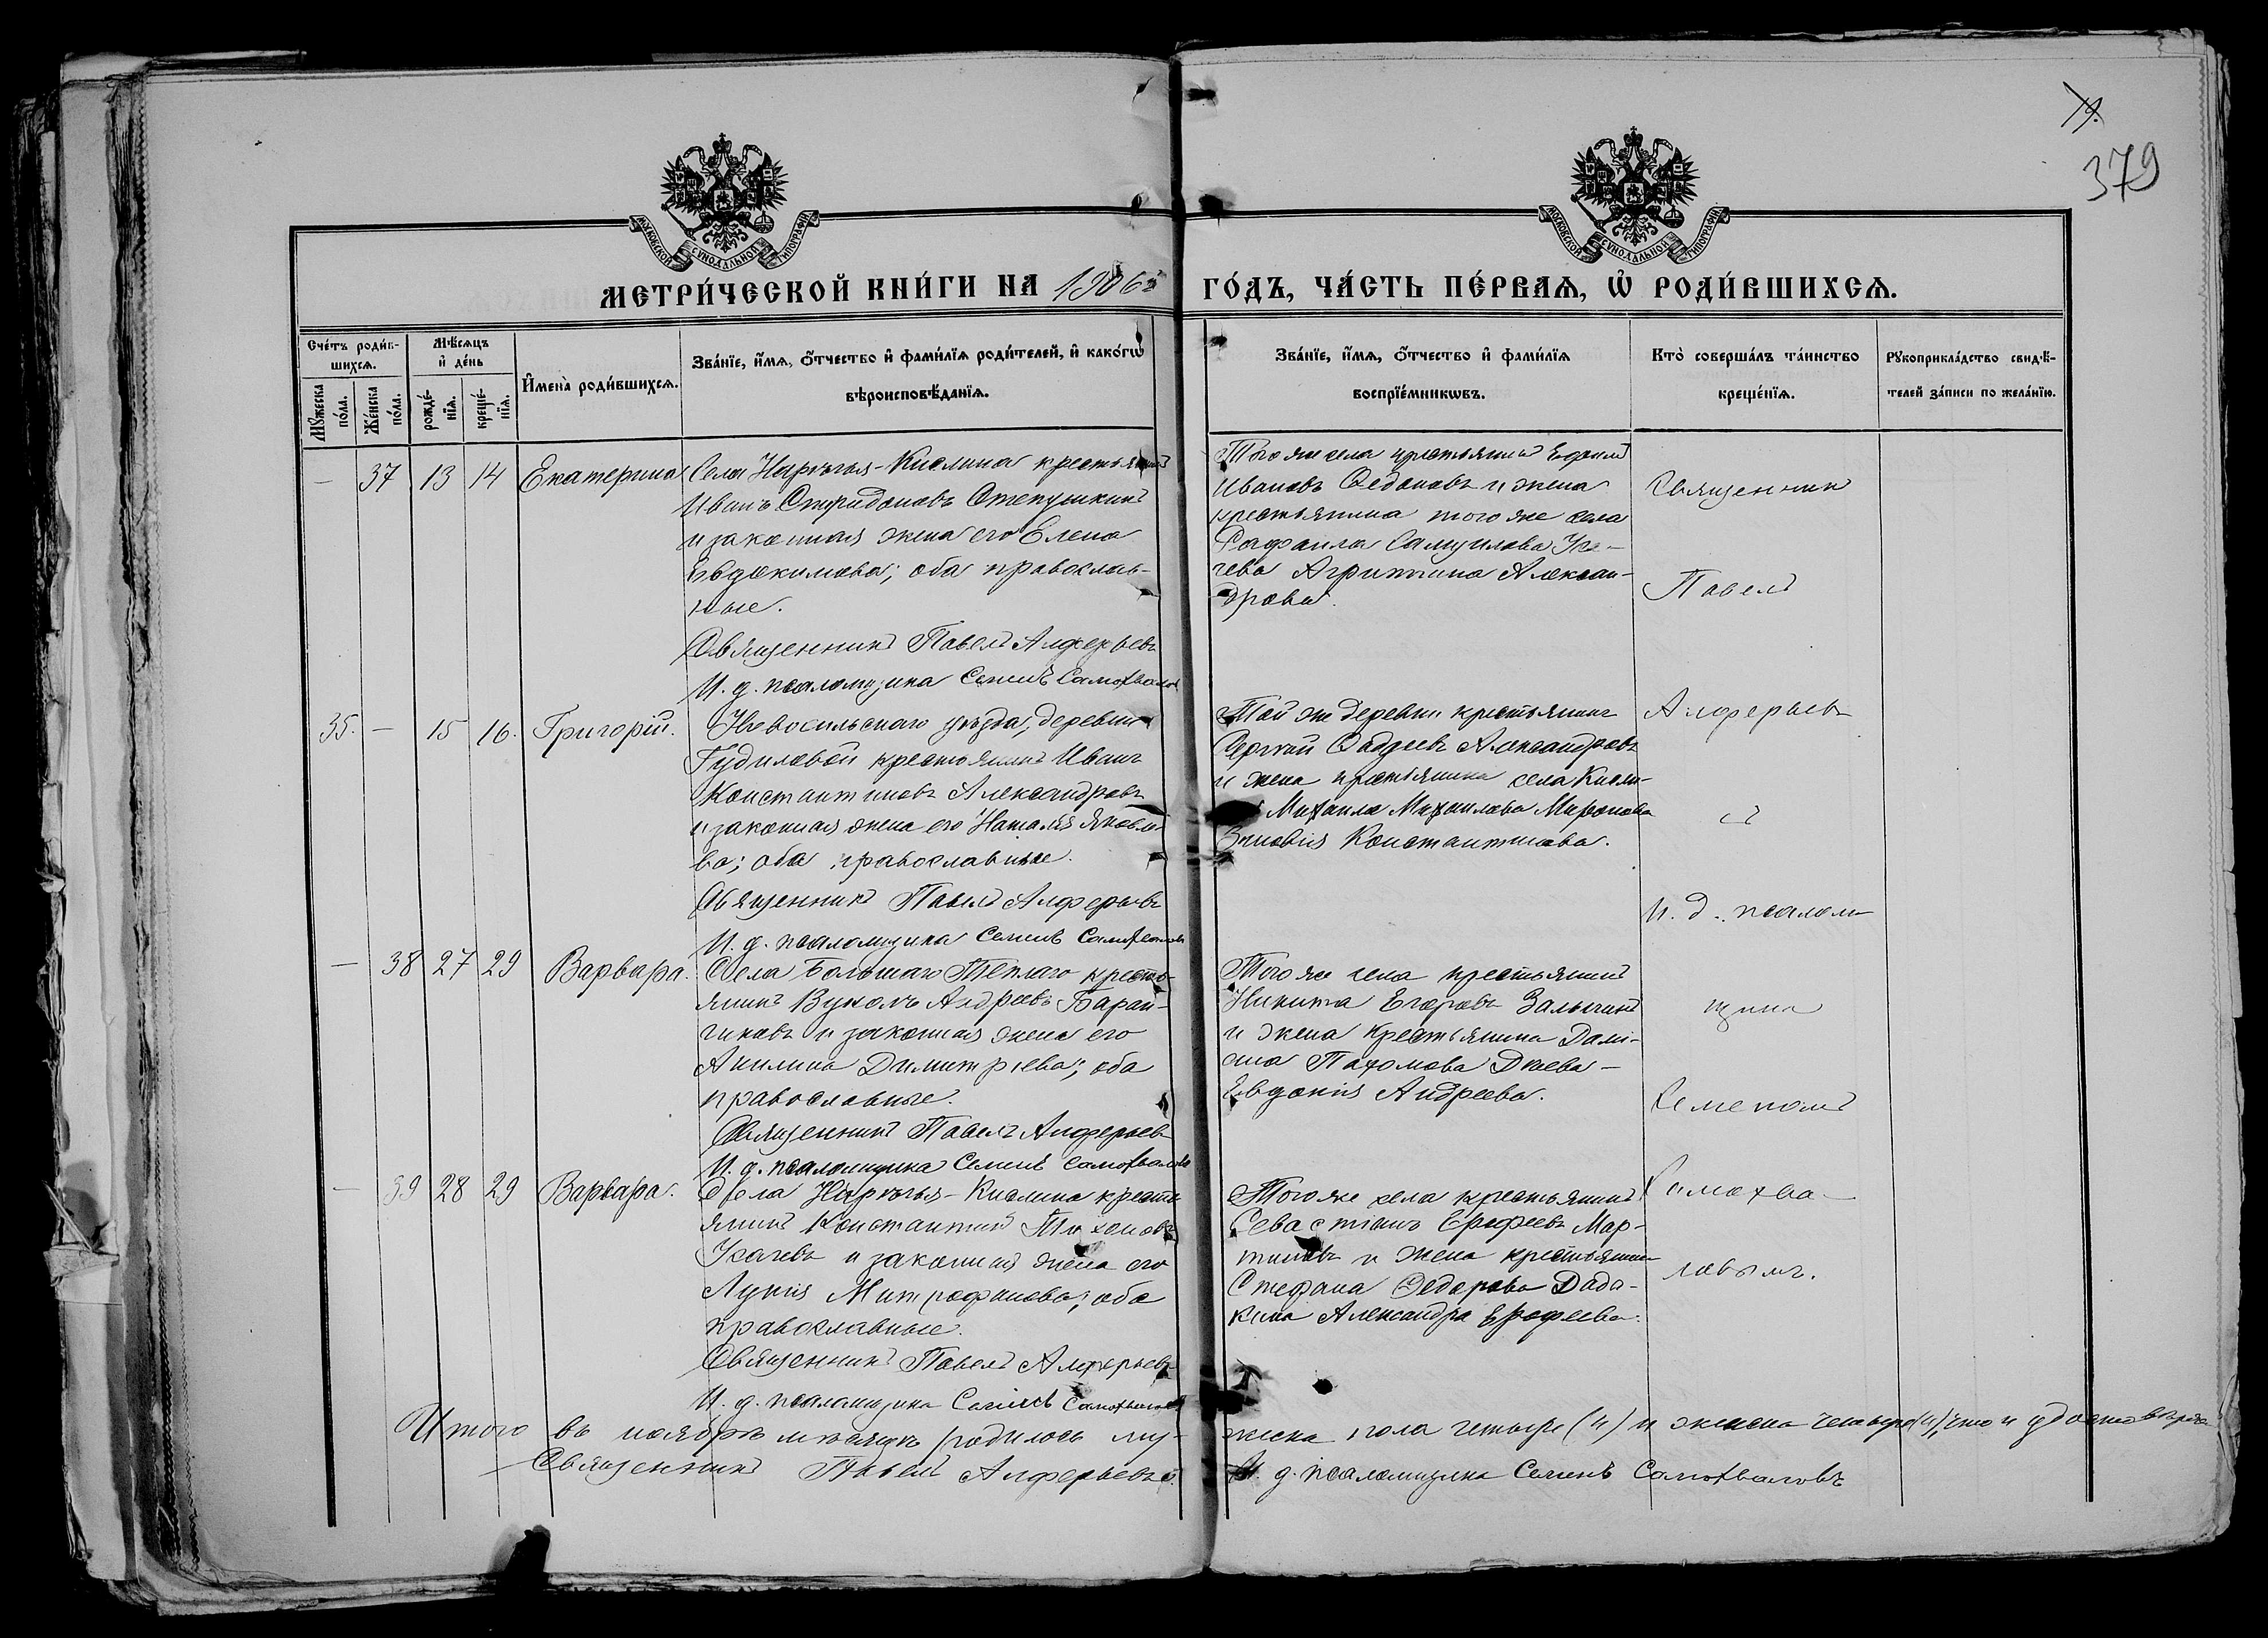 19.
379
МОСКОВСКОЙ СѴНОДАЛЬНОЙ ТИПОГРАФІИ
МОСКОВСКОЙ СѴНОДАЛЬНОЙ ТИПОГРАФІИ
МЕТРИ́ЧЕСКОЙ КНИ́ГИ НА 1906й
ГО́ДЪ, ЧА́СТЬ ПЕ́РВАѦ, Ѡ҆ РОДИ́ВШИХСѦ.
Сче́тъ роди́в-
шихсѧ.
Мꙋ́жеска по́ла.
Же́нска по́ла.
Мѣ́сѧцъ
и҆ де́нь
рожде́-
нїѧ.
креще́-
нїѧ.
И҆мена̀ роди́вшихсѧ.
Зва́нїе, и҆́мѧ, ѻ҆́тчество и҆ фами́лїѧ роди́телей, и҆ како́гѡ
вѣроисповѣ́данїѧ.
Зва́нїе, и҆́мѧ, ѻ҆́тчество и҆ фами́лїѧ
воспрїе́мникѡвъ.
Кто̀ соверша́лъ та́инство
креще́нїѧ.
Рꙋкоприкла́дство свидѣ́-
телей за́писи по жела́нїю.
— 37 13 14 Екатерина
Села Наречья-Кислина крестьянинъ
Иванъ Спиридоновъ Степушкинъ
и законная жена его Елена
Евдокимова; оба православ-
ные.
Священникъ Павелъ Алферьевъ
И. д. псаломщика Семенъ Самохваловъ
Того же села крестьянинъ Ефимъ
Ивановъ Федоновъ и жена
крестьянина того же села
Рафаила Самуилова Уса-
чева Агрипина Алексан-
дрова.
35. — 15 16. Григорій.
Новосильскаго уѣзда, деревни
Гудиловой крестьянинъ Иванъ
Константиновъ Александровъ
и законная жена его Наталія Яковле-
ва; оба православные.
Священникъ Павелъ Алферьевъ
И. д. псаломщика Семенъ Самохваловъ
Той же деревни крестьянинъ
Сергѣй Фаддеевъ Александровъ
и жена крестьянина села Кисли-
Михаила Михаилова Миронова
Зиновія Константинова.
— 38 27 29 Варвара.
Села Большаго Теплаго кресть-
янинъ Вуколъ Андреевъ Баран-
чиковъ и законная жена его
Акилина Димитріева; оба
православные.
Священникъ Павелъ Алферьевъ
И. д. псаломщика Семенъ Самохваловъ
Того же села крестьянинъ
Никита Егоровъ Залыгинъ
и жена крестьянина Дамі-
ана Пахомова Дкева —
Евдокія Андреева.
— 39 28 29 Варвара.
Села Наречья-Кислина кресть-
янинъ Константинъ Тихоновъ
Усачевъ и законная жена его
Лукія Митрофанова; оба
православные.
Священникъ Павелъ Алферьевъ
И. д. псаломщика Семенъ Самохваловъ
Того же села крестьянинъ
Севастіанъ Ерофеевъ Мар-
тиновъ и жена крестьянина
Стефана Федорова Дада-
кина Александра Ерофеева.
Священник
Павелъ
Алферьевъ
съ
И. д. псалом-
щика
Семеномъ
Самохва-
ловымъ.
Итого въ ноябрѣ мѣсяцѣ родилось му-
жеска пола четыре (4) и женска четыре (4), что и удостовѣряю
Священникъ Павелъ Алферьевъ.
И. д. псаломщика Семенъ Самохваловъ